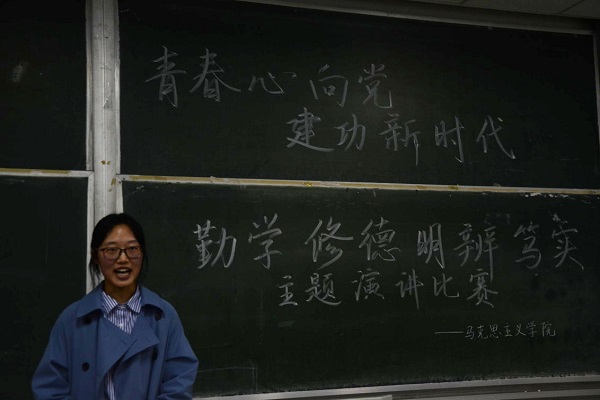 青春心向党
建功新时代
勤学修德明辨笃实
主题演讲比赛
——马克思主义学院